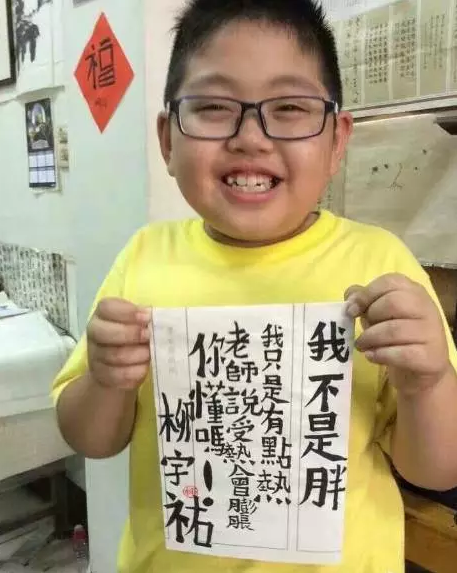 福
我不是胖
我只是有點熱
老師說受熱會膨脹
你懂嗎！
柳宇祐